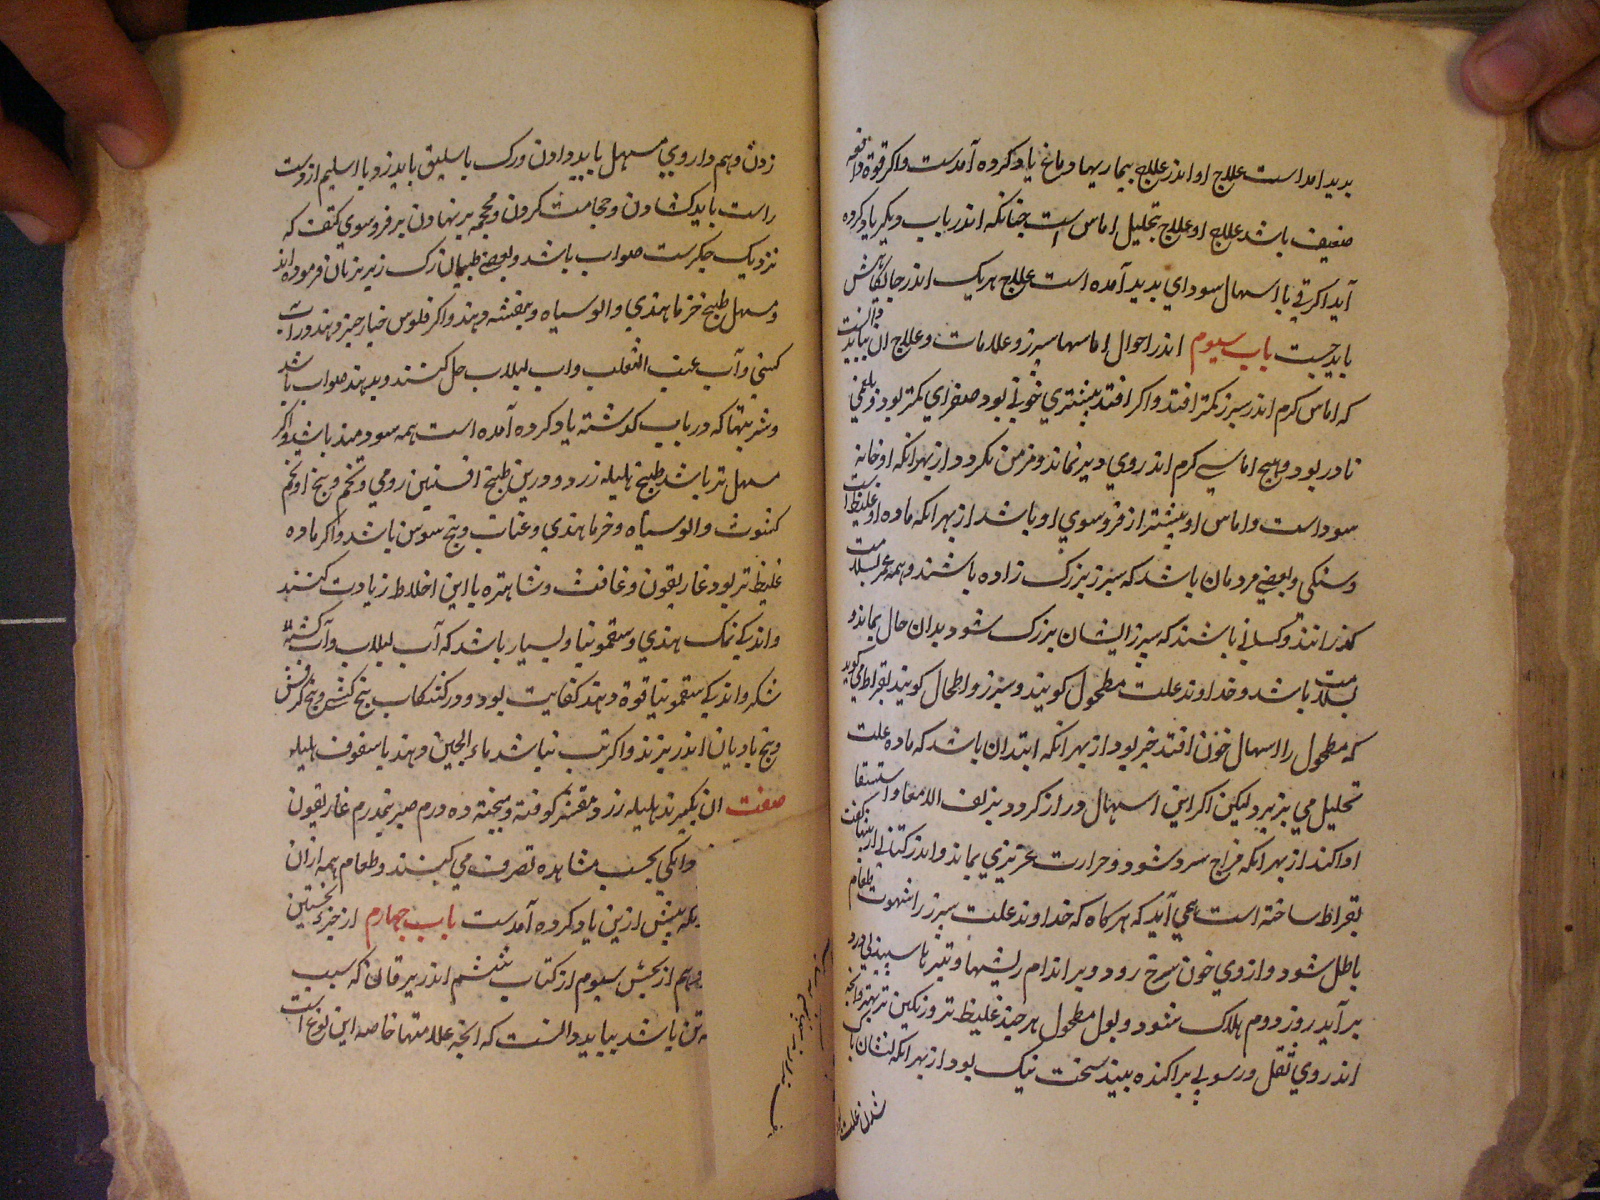 بدید امداست علاج او اندر علاج بیماریهاء دماغ یاد کرده آمدست واکر قوة دافعه
ضعیف باشد علاج او علاج تحلیل اماس است جنانکه اندر باب دیکر یاد کرده
آید اکر قی یا اسهال سودای بدید آمده است علاج هر یک اندر جایکاهش
باید جست باب سیوم اندر احوال اماسهاء سپرز و علامات و علاج ان بباید دانست
که اماس کرم اندر سپرز کمتر افتد و اکر افتد بیشتری خونی بود صفرای کمتر بود و بلغمی
نادر بود و هیچ اماسی کرم اندر وی دیر نماند و مزمن نکردد از بهر انکه او خانه
سوداست و اماس او بیشتر از فروسوی او باشد از بهر انکه ماده او غلیظ است
و سنکی و بعضی مردمان باشد که سپرز بزرک زاده باشند و همه عمر بسلامت
کذرانند و کسانی باشند که سپرز ایشان بزرک شود بدان حال بماند و
بسلامت باشد و خداوند علت مطحول کویند و سپرز را طحال کویند بقراط می کوید
که مطحول را اسهال خون افتد خیر بود از بهر انکه ابتدان باشد که ماده علت
تحلیل می پزیرد لیکن اکر این اسهال دراز کردد بزلف الامعا و استسقا
ادا کند از بهر انکه مزاج سرد شود و حرارت عزیزی نماند و اندر کتابی
بقراط ساخته است می آید که هرکاه که خداوند علت سپرز را شهوت طعام
باطل شود و از وی خون سرخ رود و بر اندام ریشها و بثر تا سپید بی درد
بر آید روز دوم هلاک شود و بول مطحول هر جند غلیظ تر و رنکین تر بهتر و انجه
اندر وی ثقل و رسوبی براکنده بیند سخت نیک بود از بهر انکه نشان پاک
شدن علت
زدن و هم داروی مسهل باید دادن و رک باسلیق باید زد یا اسلیم از دست
راست باید کشادن و حجامت کردن و محجمه بر نهادن بر فروسوی کتف که
نزدیک جکرست صواب باشد و بعضی طبیبان رک زیر زبان فرموده اند
و مسهل طبیخ خرما هندی و الو سیاه و بنفشه دهند و اکر فلوس خیارجنبر دهند در آب
کسنی و آب عنب الثعلب و اب لبلاب حل کنند و بدهند صواب باشد
و شربتها که در باب کدشته یاد کرده آمده است همه سودمند باشد و اکر
مسهل تر باشد طبیخ هلیله زرد و درین طبیخ افسنتین رومی و تخم و بیخ او تخم
کشوث و الو سیاه و خرما هندی و عناب و بیخ سوس باشد و اکر ماده
غلیظ تر بود غاریقون و غافث و شاهتره با این اخلاط زیادت کنند
و اندکی نمک هندی و سقمونیا و بسیار باشد که آب لبلاب و آب کشنه
شکر و اندکی سقمونیا قوة دهند کفایت بود و در کشکاب بیخ کشنی و بیخ کرفش
و بیخ بادیان اندر پزند و اکر تب نباشد ماء الجبن دهند با سفوف هلیله
صفت ان بکیرند هلیله زرد مقشر کوفته و بیخته ده درم صبر نیمدرم غاریقون
دانکی بحسب مشاهده تصرف می کنند و طعام همه ازان
که بیش ازین یاد کرده آمدست باب جهارم از جزء نخستین
از بخش سیوم از کتاب ششم اندر یرقان که سبب
تن باشد بباید دانست که انجه علامتها خاصه این نوع است